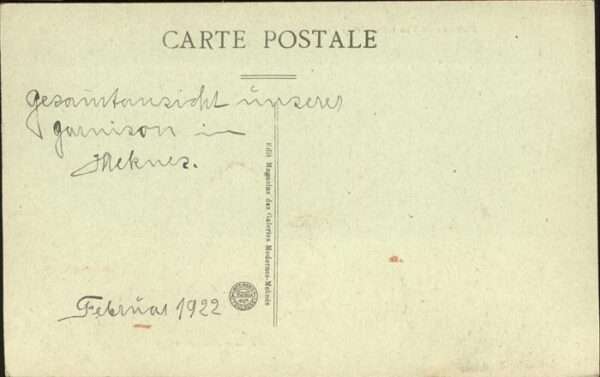 CARTE POSTALE
Gesamtansicht unserer
Garnison in
Meknes.
Edit Magasins des Galeries Modernes-Meknès
Februar 1922